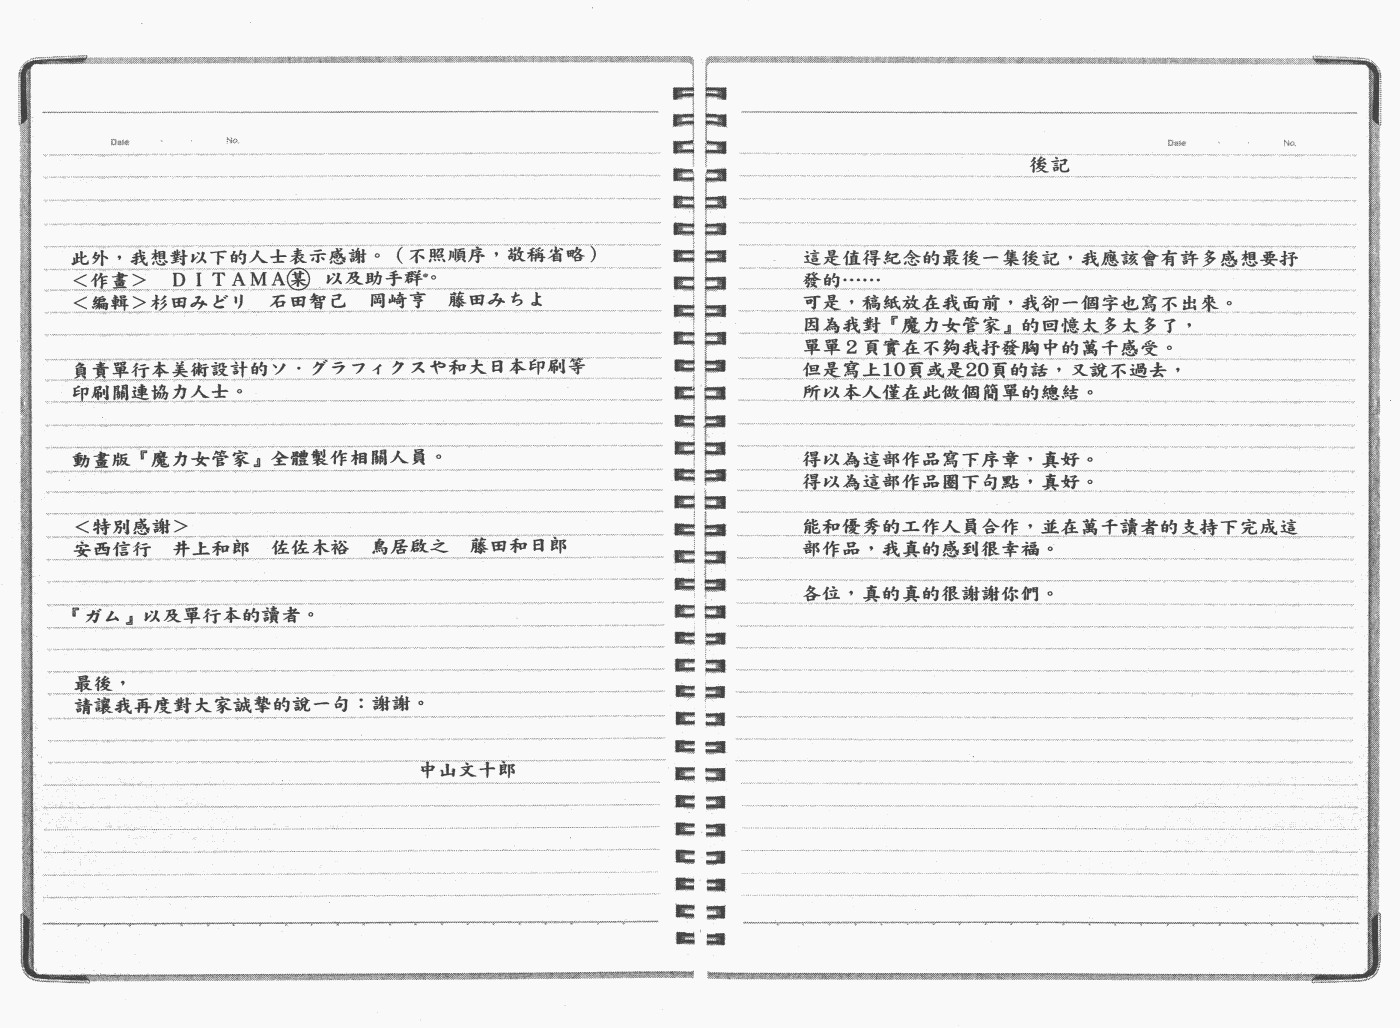 Date ・ ・ No.
後記
這是值得紀念的最後一集後記，我應該會有許多感想要抒
發的……
可是，稿紙放在我面前，我卻一個字也寫不出來。
因為我對『魔力女管家』的回憶太多太多了，
單單２頁實在不夠我抒發胸中的萬千感受。
但是寫上10頁或是20頁的話，又說不過去，
所以本人僅在此做個簡單的總結。
得以為這部作品寫下序章，真好。
得以為這部作品圈下句點，真好。
能和優秀的工作人員合作，並在萬千讀者的支持下完成這
部作品，我真的感到很幸福。
各位，真的真的很謝謝你們。
Date ・ ・ No.
此外，我想對以下的人士表示感謝。（不照順序，敬稱省略）
＜作畫＞　ＤＩＴＡＭＡ㊅某 以及助手群。
＜編輯＞杉田みどり　石田智己　岡崎亨　藤田みちよ
負責單行本美術設計的ソ・グラフィクスや和大日本印刷等
印刷關連協力人士。
動畫版『魔力女管家』全體製作相關人員。
＜特別感謝＞
安西信行　井上和郎　佐佐木裕　鳥居啟之　藤田和日郎
『ガム』以及單行本的讀者。
最後，
請讓我再度對大家誠摯的說一句：謝謝。
中山文十郎